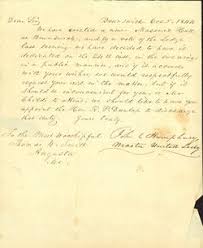 Dear Sir Brunswick Dec 5. 1844
We have erected a new Masonic Hall
at Brunswick, and by a vote of the Lodge
last evening we have decided to have it
dedicated on the 26th inst. in the eve
ning in a public manner, and if it accords
with your wishes we would respectfully
request your aid in the matter, but if it
should be inconvenient for you, or dis
agreeable to attend, we should like to have you
appoint the Hon. R. P. Dunlap to discharge
that duty. Yours truly
To the Most Worshipful John C Humphreys
Thomas W. Smith Master United Lodge
Augusta
Me.